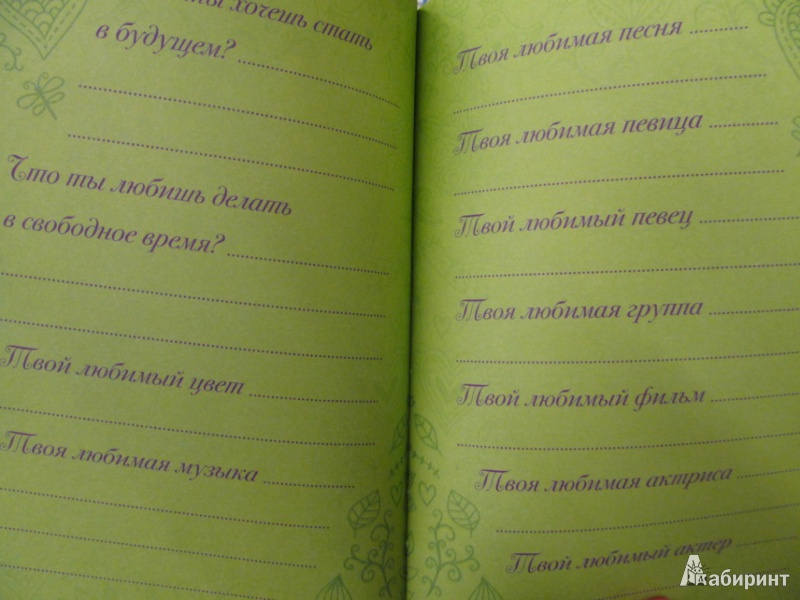 ты хочешь стать
в будущем?
Что ты любишь делать
в свободное время?
Твой любимый цвет
Твоя любимая музыка
Твоя любимая песня
Твоя любимая певица
Твой любимый певец
Твоя любимая группа
Твой любимый фильм
Твоя любимая актриса
Твой любимый актер
Лабиринт